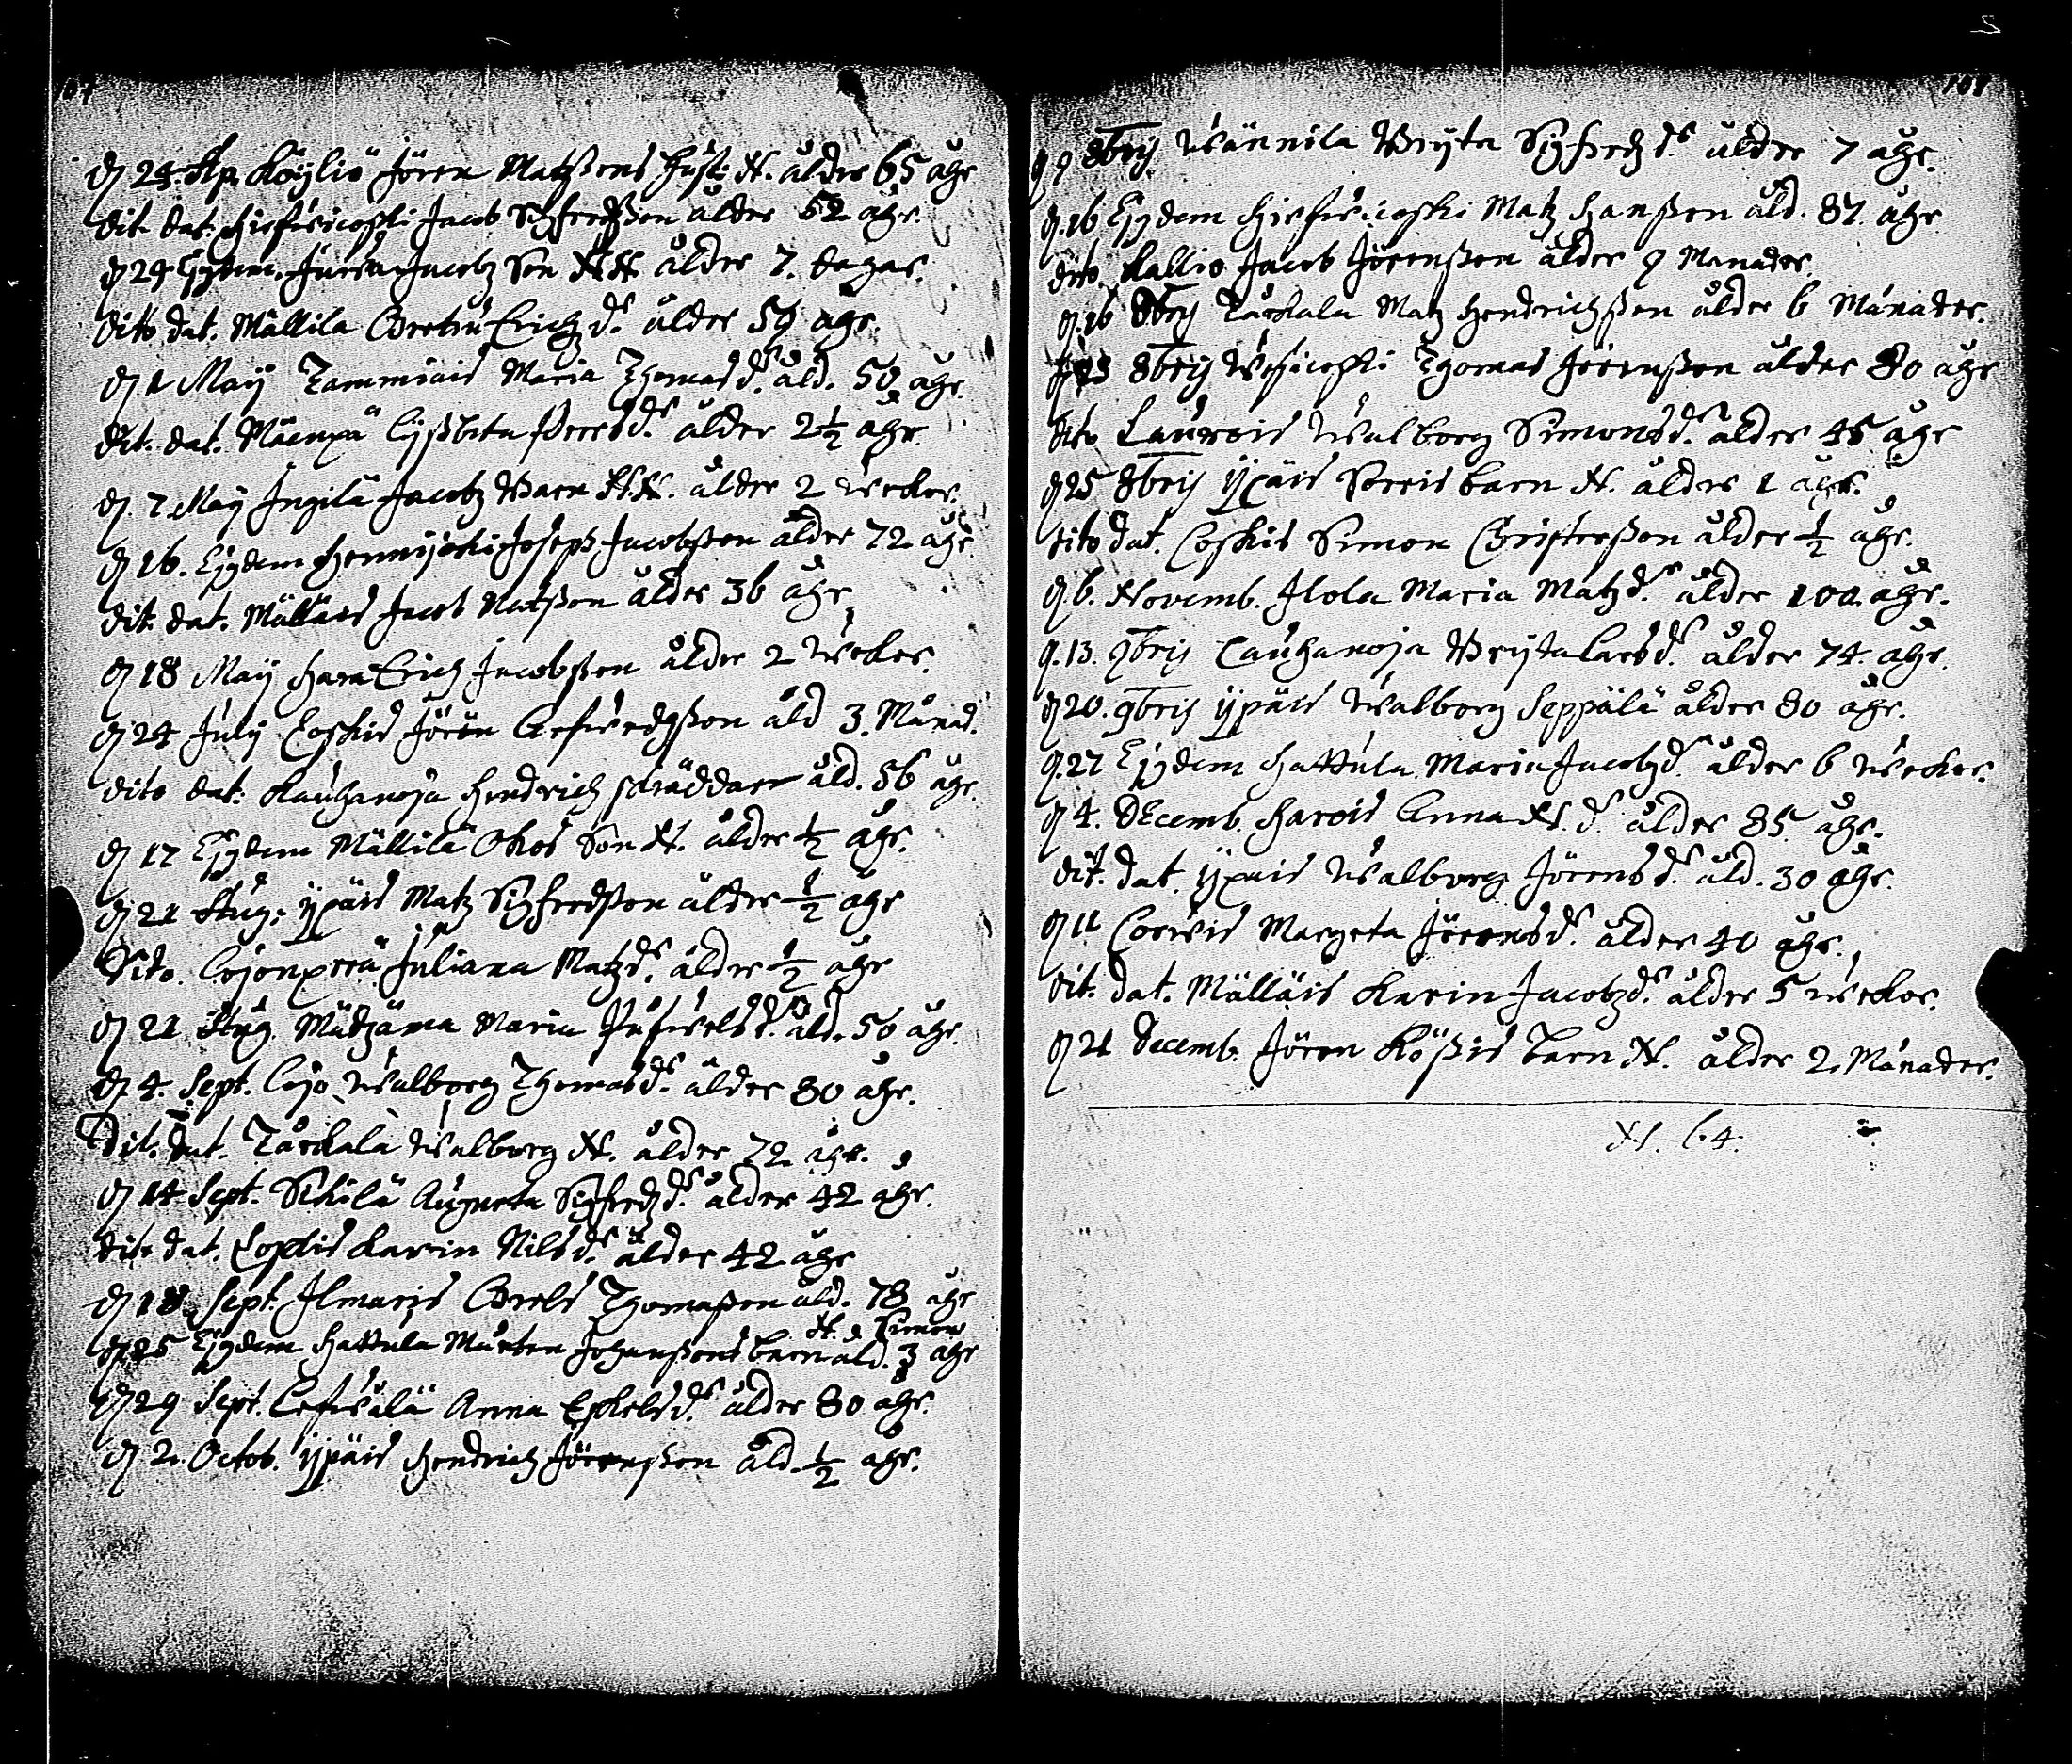 107
D 24. Ap. Köÿliö Jören Matzßons hust: N. ålder 65 åhr
dit. dat. Hirfwicoski Jacob Sigfredßon ålder 52 åhr.
D 29 Ejusdem. Jacobz Son N.N. ålder 7. dagar.
dito dat. Mällilä Bretu Erichz dr. ålder 59 åhr.
D 1 Maÿ Tammiais Maria Thomas dr. åld. 50 åhr.
dit. dat. Mäenpä Lÿsbeta Pers dr. ålder 2½ åhr
D. 7. Maÿ Ingilä Jacobz Barn N.N. ålder 2 wekor.
D 16. Ejusdem Hennijoki Joseph Jacobßon ålder 72 åhr.
dit. dat. Mälläis Jacob Matßon ålder 36 åhr
D 18 Maÿ Hara Erich Jacobßon ålder 2 wekor.
D 24 Julÿ Coskis Jören åld 3. Månad.
dito dat. Kauhanoja Hendrich skräddare åld. 56 åhr.
D 17 Ejusdem Mällilä Okos Son N. ålder ½ åhr.
D 21 Aug: ÿpäis Matz Sigfredßon ålder ½ åhr
Dito. Cojonperä Juliana Matz dr. ålder ½ åhr
D 21 Aug. Mädzäma Maria dr. åld. 50 åhr.
D 4. Sept. Cojo Walborg Thomas dr. ålder 80 åhr.
Dit. dat. Tårkala Walborg N. ålder 72 åhr.
D 14 Sept. Sikilä Augneta Sigfredz dr. ålder 42 åhr.
dit. dat. Karin Nils dr. ålder 42 åhr
D 18. Sept. Ilmaris Brels Thomaßon åld. 78 åhr
N. Simon
D 25 Ejusdem Hattula Mårten Johanßons barn åld. 3 åhr
D 29 Sept. Anna Eskels dr. ålder 80 åhr.
D 2. Octob. ÿpäis Hendrich Jörenßon åld. ½ åhr.
108
D 9 8brij Wännila Brÿta Sigfredz dr. ålder 7 åhr.
D. 16 Ejusdem Hirfwicoski Matz Hanßon åld. 87. åhr
dito Kallio Jacob Jörenßon ålder 9 Månader.
D. 16 8brij Tårkala Matz Hendrichßon ålder 6 Månader.
D 23 8brij Thomas Jörenßon ålder 80 åhr
dito Laurois Walborg Simons dr. ålder 45 åhr
D 25 8brij ÿpäis Sorris barn N. ålder 1 åhr.
dito dat. Coskis Simon Christerßon ålder ½ åhr.
D 6. Novemb. Ilola Maria Matz dr. ålder 100. åhr.
D. 13. 9brij Cauhanoja Brÿta Lars dr. ålder 74. åhr.
D 20. 9brij ÿpäis Walborg Seppälä ålder 80 åhr.
D. 27 Ejusdem Hattula Maria Jacobz dr. ålder 6 wekor.
D 4. Decemb. Harois Anna N. d. ålder 85 åhr.
dit. dat. ÿpäis Walborg Jörens dr. åld. 30 åhr.
D 11 Corvis Margeta Jörens dr. ålder 40 åhr.
dit. dat. Mälläis Karin Jacobz dr. ålder 5 wekor.
D 21 Decemb. Jören Kößis barn N. ålder 2. Månader.
N. 64.